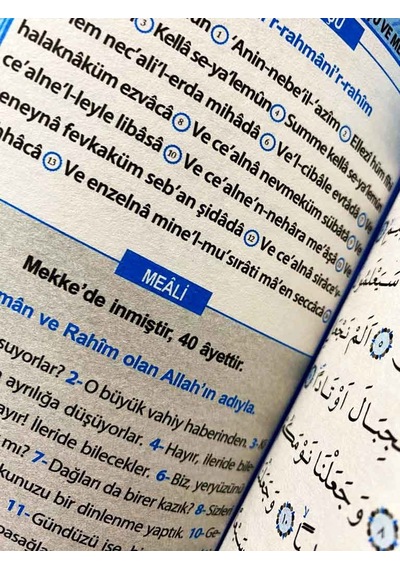 r-rahmâni'r-rahîm
'Anin-nebe'il-'azîm ② Ellezî hüm fîhi
③ Kellâ se-ya'lemûn ④ Summe kellâ se-ya'lemûn
lem nec'ali'l-erda mihâdâ ⑥ Ve'l-cibâle evtâdâ
halaknâküm ezvâcâ ⑧ Ve ce'alnâ nevmeküm sübâtâ ⑨ Ve
ce'alne'l-leyle libâsâ ⑩ Ve ce'alne'n-nehâra me'âşâ ⑪ Ve
beneynâ fevkaküm seb'an şidâdâ ⑫ Ve ce'alnâ sirâce'v-
vehhâcâ ⑬ Ve enzelnâ mine'l-mu'sırâti mâ'en seccâcâ
MEÂLİ
Mekke'de inmiştir, 40 âyettir.
Rahmân ve Rahîm olan Allah'ın adıyla.
2-O büyük vahiy haberinden. 3-Ki
ayrılığa düşüyorlar? 4-Hayır, ileride bile-
Hayır! İleride bilecekler. 6-Biz, yeryüzünü
mi? 7-Dağları da birer kazık? 8-Sizleri
kunuzu bir dinlenme yaptık. 10-Ge-
11-Gündüzü ise
أَلَمْ نَجْعَلِ
أَوْتَادًا
وَجَعَلْنَا نَوْمَكُمْ
وَجَعَلْنَا